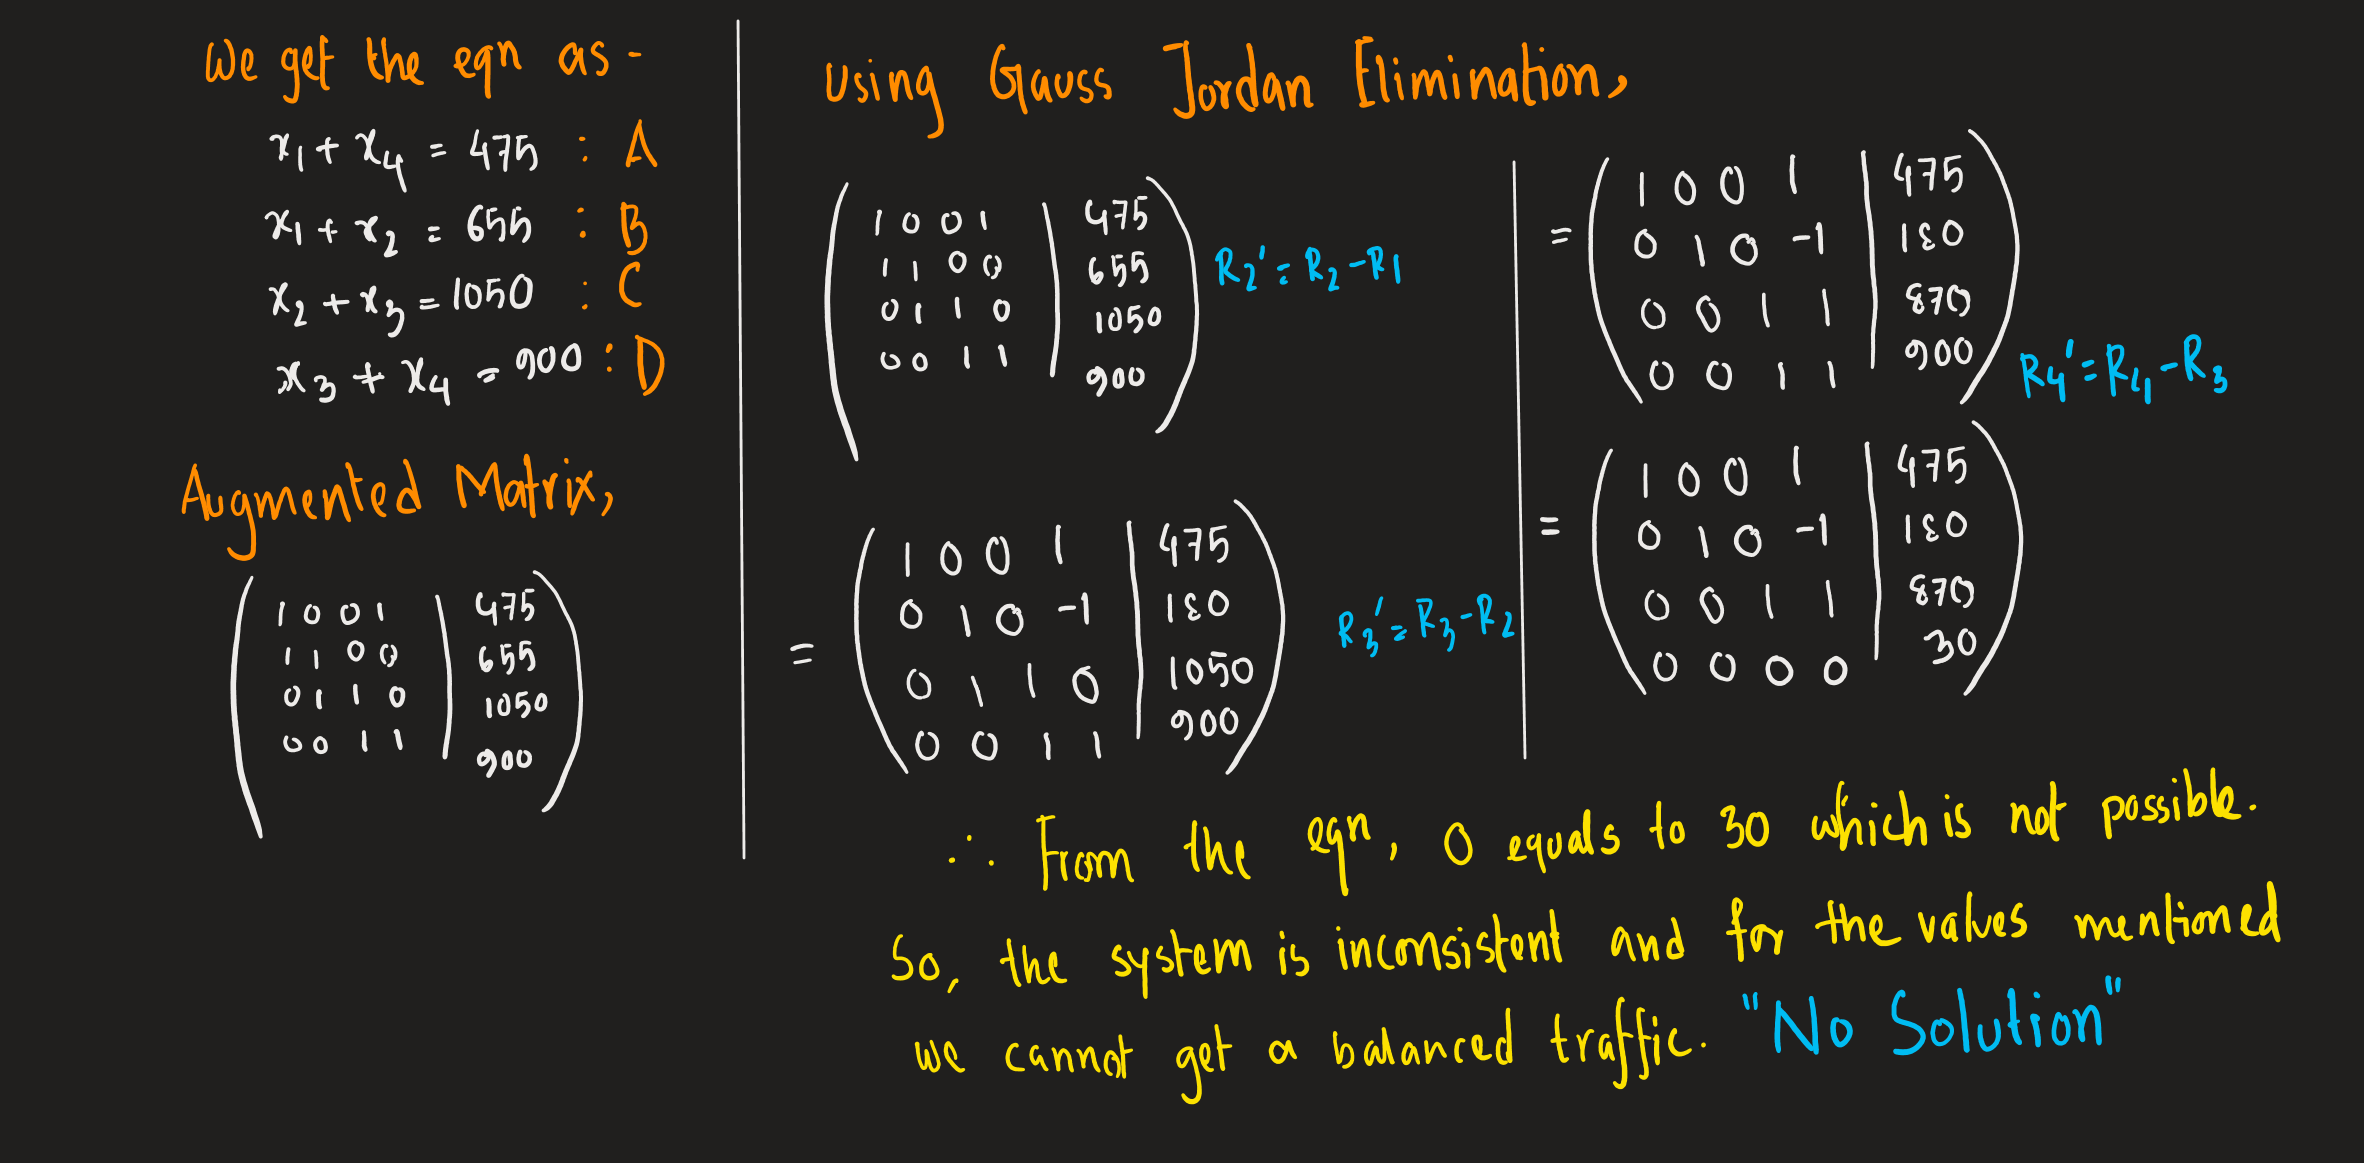 We get the eqn as -
x₁ + x₄ = 475 : A
x₁ + x₂ = 655 : B
x₂ + x₃ = 1050 : C
x₃ + x₄ = 900 : D
Augmented Matrix,
1 0 0 1 | 475
1 1 0 0 | 655
0 1 1 0 | 1050
0 0 1 1 | 900
Using Gauss Jordan Elimination,
1 0 0 1 | 475
1 1 0 0 | 655 R₂' = R₂ - R1
0 1 1 0 | 1050
0 0 1 1 | 900
=
1 0 0 1 | 475
0 1 0 -1 | 180
0 1 1 0 | 1050 R₃' = R₃ - R₂
0 0 1 1 | 900
=
1 0 0 1 | 475
0 1 0 -1 | 180
0 0 1 1 | 870
0 0 1 1 | 900 R₄' = R₄ - R₃
=
1 0 0 1 | 475
0 1 0 -1 | 180
0 0 1 1 | 870
0 0 0 0 | 30
∴ From the eqn, 0 equals to 30 which is not possible.
So, the system is inconsistent and for the values mentioned
we cannot get a balanced traffic. "No Solution"